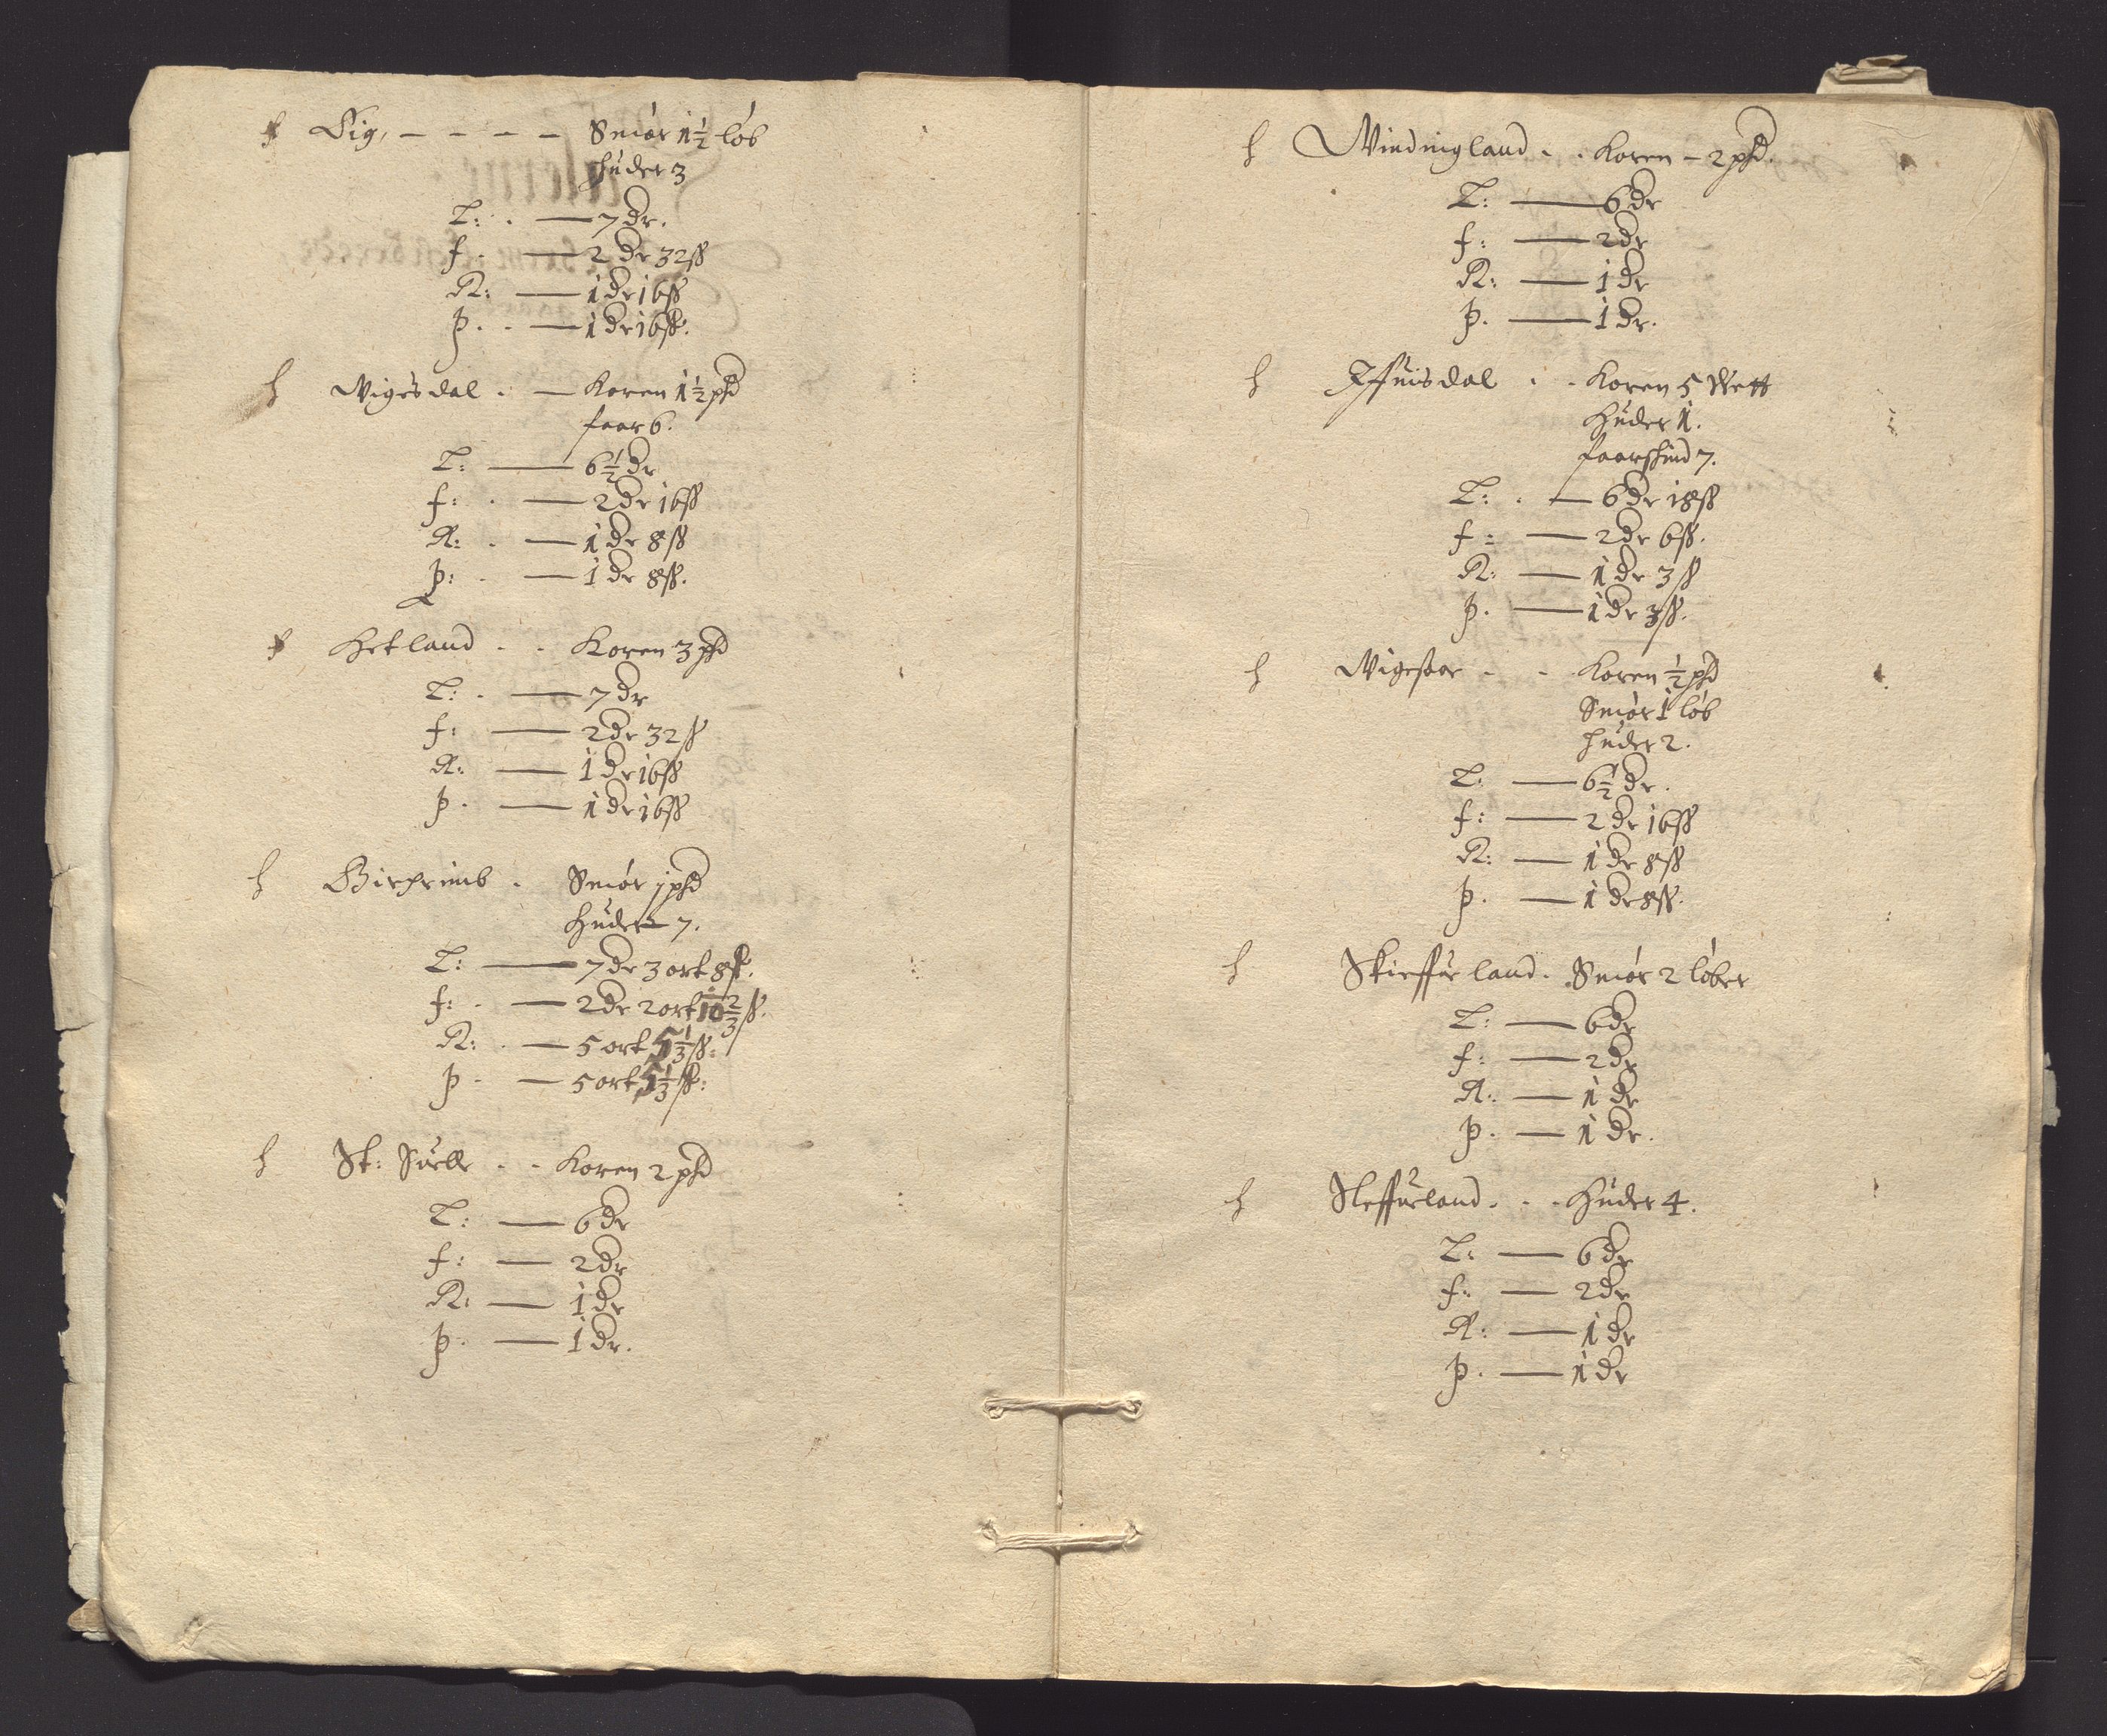 Eig, - - - - Smör 1½ löb
huder 3
L: . — 7 dr.
f . — 2 dr 32 ß
K: — 1 dr 16 ß
þ . - — 1 dr 16 ß.
h Wigesdal . — Koren 1½ pd
faar 6.
L: — 6½ dr
f: . — 2 dr 16 ß
K: . — 1 dr 8 ß
þ: . — 1 dr 8 ß.
Hetland . . Koren 3 pd
L: . — 7 dr
f: — 2 dr 32 ß
K: — 1 dr 16 ß
þ . — 1 dr 16 ß
h Birchrimb . Smör j pd
Huder — 7.
L: — 7 dr 3 ort 8 ß.
f: . — 2 dr 2 ort 10⅔ ß.
K: . — 5 ort 5⅓ ß:
þ . — 5 ort 5⅓ ß:
h St: Suele . . Koren 2 pd
L: — 6 dr
f: — 2 dr
K: — 1 dr
þ . — 1 dr.
h Windingland . . Koren - 2 pd.
L: — 6 dr
f: — 2 dr
K: — 1 dr
þ. — 1 dr.
h Iffuisdal . . Koren 5 Wett
Huder 1.
faarskind 7.
L: . — 6 dr 18 ß
f: — 2 dr 6 ß.
K: — 1 dr 3 ß
þ. — 1 dr 3 ß.
h Wigesaae . . Koren ½ pd
Smör 1 löb
huder 2.
L: — 6½ dr.
f: — 2 dr 16 ß
K: — 1 dr 8 ß
þ. — 1 dr 8 ß.
h Skieffueland . Smör 2 löber
L: — 6 dr
f: — 2 dr
K: — 1 dr
þ. — 1 dr.
h Sleffueland . . . Huder 4.
L: — 6 dr
f: — 2 dr
K: — 1 dr
þ. — 1 dr